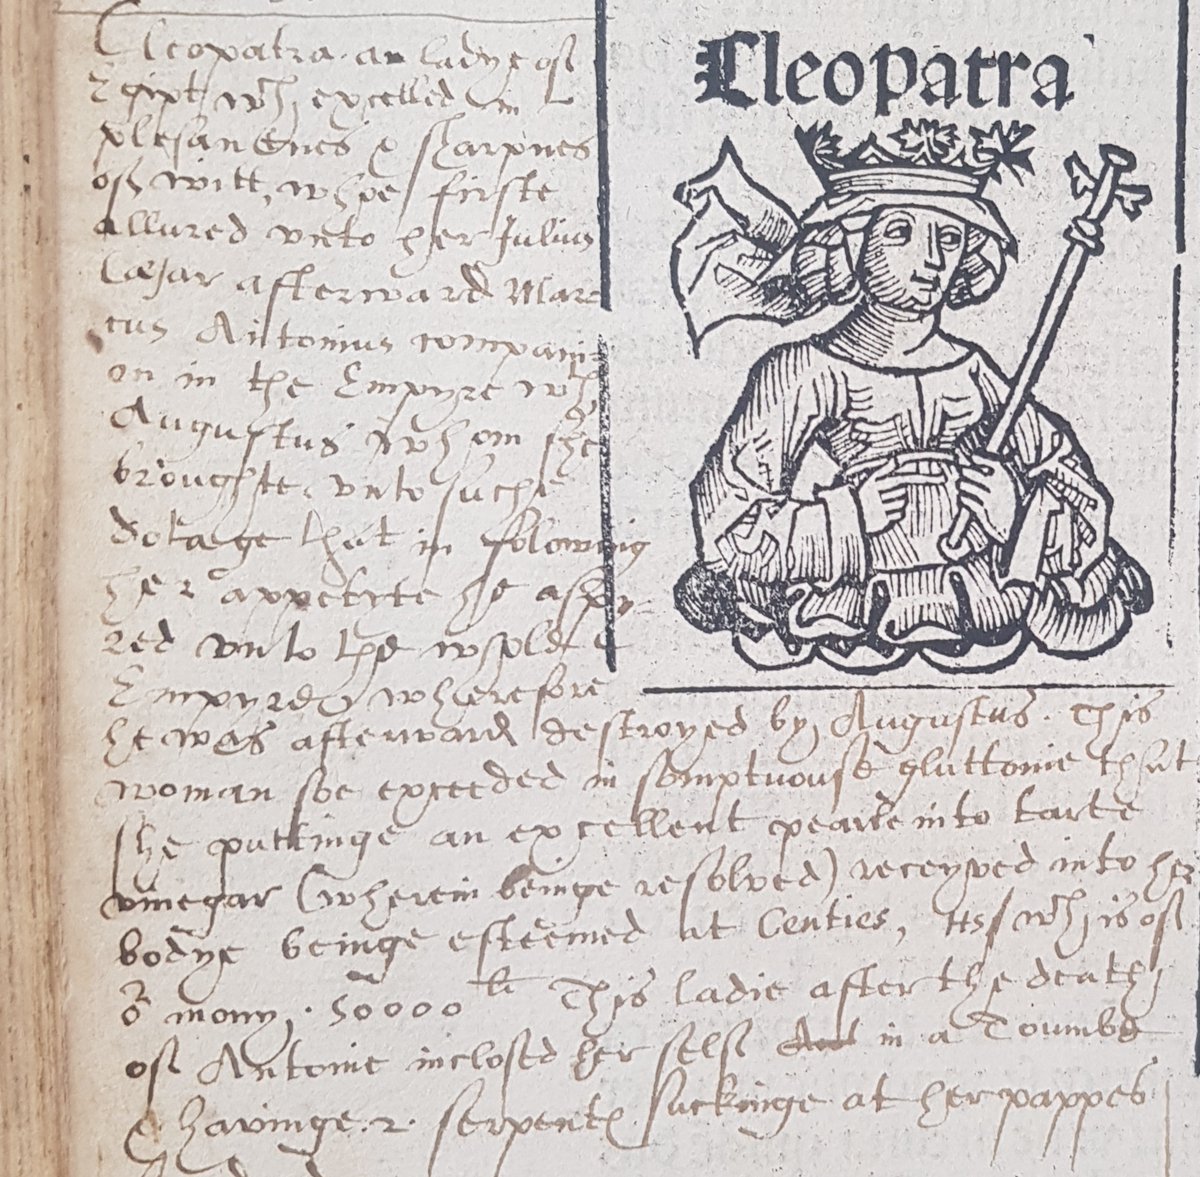 Cleopatra
Cleopatra · an ladye of
Egipt wch excelled in
plesantnes & sharpnes
of witt, whoe firste
allured vnto her Julius
Cæsar afterward Mar=
cus Antonius compani=
on in the Empyre wth
Augustus whom she
broughte vnto suche
dotage that in folowing
her appetite he aspy=
red vnto the whole
Empyre, wherefore
he was afterward destroyed by Augustus. This
woman soe exceeded in somptuouse gluttonie that
she puttinge an excellent pearle into tarte
vinegar (wherein beinge resolved) receyved into her
bodye beinge esteemed at Centies, HS wch is of
or mony · 50000 li This ladie after the death
of Antonie inclosed her self in a Toumbe
& havinge .2. serpents suckinge at her pappes